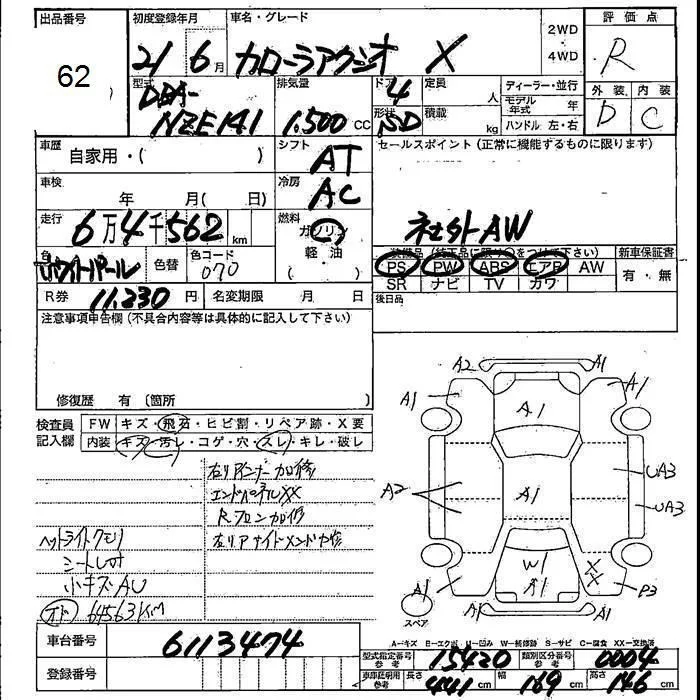 出品番号 初度登録年月 車名・グレード 2WD 評価点
62 21 6月 カローラアクシオ X ・4WD R
型式 排気量 ドア 定員 ディーラー・並行 外装 内装
DBA- 4 人 モデル年式 年 D C
NZE141 1,500 CC 形状 SD 積載 kg ハンドル 左・右
車歴 自家用・( ) シフト AT セールスポイント (正常に機能するものに限ります)
車検 年 月( 日) 冷房 AC
走行 6万4千562km 燃料 ガソリン 社外AW
色 ホワイトパール 色替 色コード 070 軽油 ・( ) 装備品 (純正品に限り○をつけて下さい) 新車保証書
PS PW ABS エアB AW 有・無
SR ナビ TV カワ
R券 11,230円 名変期限 月 日 後日品
注意事項申告欄 (不具合内容等は具体的に記入して下さい)
修復歴 有 (箇所 )
検査員記入欄 FW キズ・飛石・ヒビ割・リペア跡・X要
内装 キズ・汚レ・コゲ・穴・スレ・キレ・破レ
エンドパネルXX
ヘッドライトクモリ
小キズAU
オド 64563KM
A2 A1
A1 A1 A1
UA3
A2 A1 UA3
W1 XX
A1 A1 P3
スペア A1 A1
A=キズ E=エクボ U=凹み W=補修跡 S=サビ C=腐食 XX=交換済
車台番号 6113474 型式指定番号 参考 15420 類別区分番号 参考 0004
登録番号 車庫証明用 参考 長さ 441cm 幅 169cm 高さ 146cm